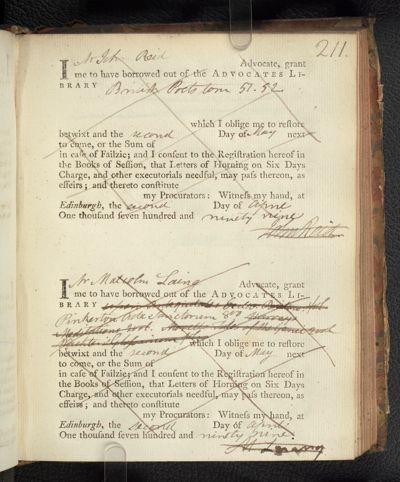 211.
I Mr Jeh Reid Advocate, grant
me to have borrowed out of the ADVOCATES LI-
BRARY British Poets tom 51. 52
which I oblige me to restore
betwixt and the second Day of May next
to come, or the Sum of
in case of Failzie; and I consent to the Registration hereof in
the Books of Session, that Letters of Horning on Six Days
Charge, and other executorials needful, may pass thereon, as
effeirs; and thereto constitute
my Procurators: Witness my hand, at
Edinburgh, the second Day of April
One thousand seven hundred and ninety nine
I Mr Malcolm Laing Advocate, grant
me to have borrowed out of the ADVOCATES LI-
BRARY
Pinkerton Vitae Sanctorum 8vo
which I oblige me to restore
betwixt and the second Day of May next
to come, or the Sum of
in case of Failzie; and I consent to the Registration hereof in
the Books of Session, that Letters of Horning on Six Days
Charge, and other executorials needful, may pass thereon, as
effeirs; and thereto constitute
my Procurators: Witness my hand, at
Edinburgh, the second Day of April
One thousand seven hundred and ninety nine.
M Laing